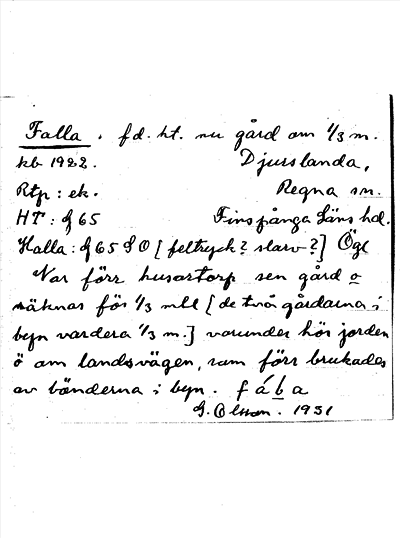 Falla. fd. ht. nu gård om 1/3 m.
kb 1922. Djurslanda,
Rtp: ek. Regna sn.
HT: f 65 Finspånga Läns hd.
Halla: f 65 S O [feltryck? slarv?] Ögl
Var förr husartorp sen gård o
räknas för 1/3 mtl [de två gårdarna i
byn vardera 1/3 m.] varunder hör jorden
ö om landsvägen, som förr brukades
av bönderna i byn. fába
G. Olsson. 1931